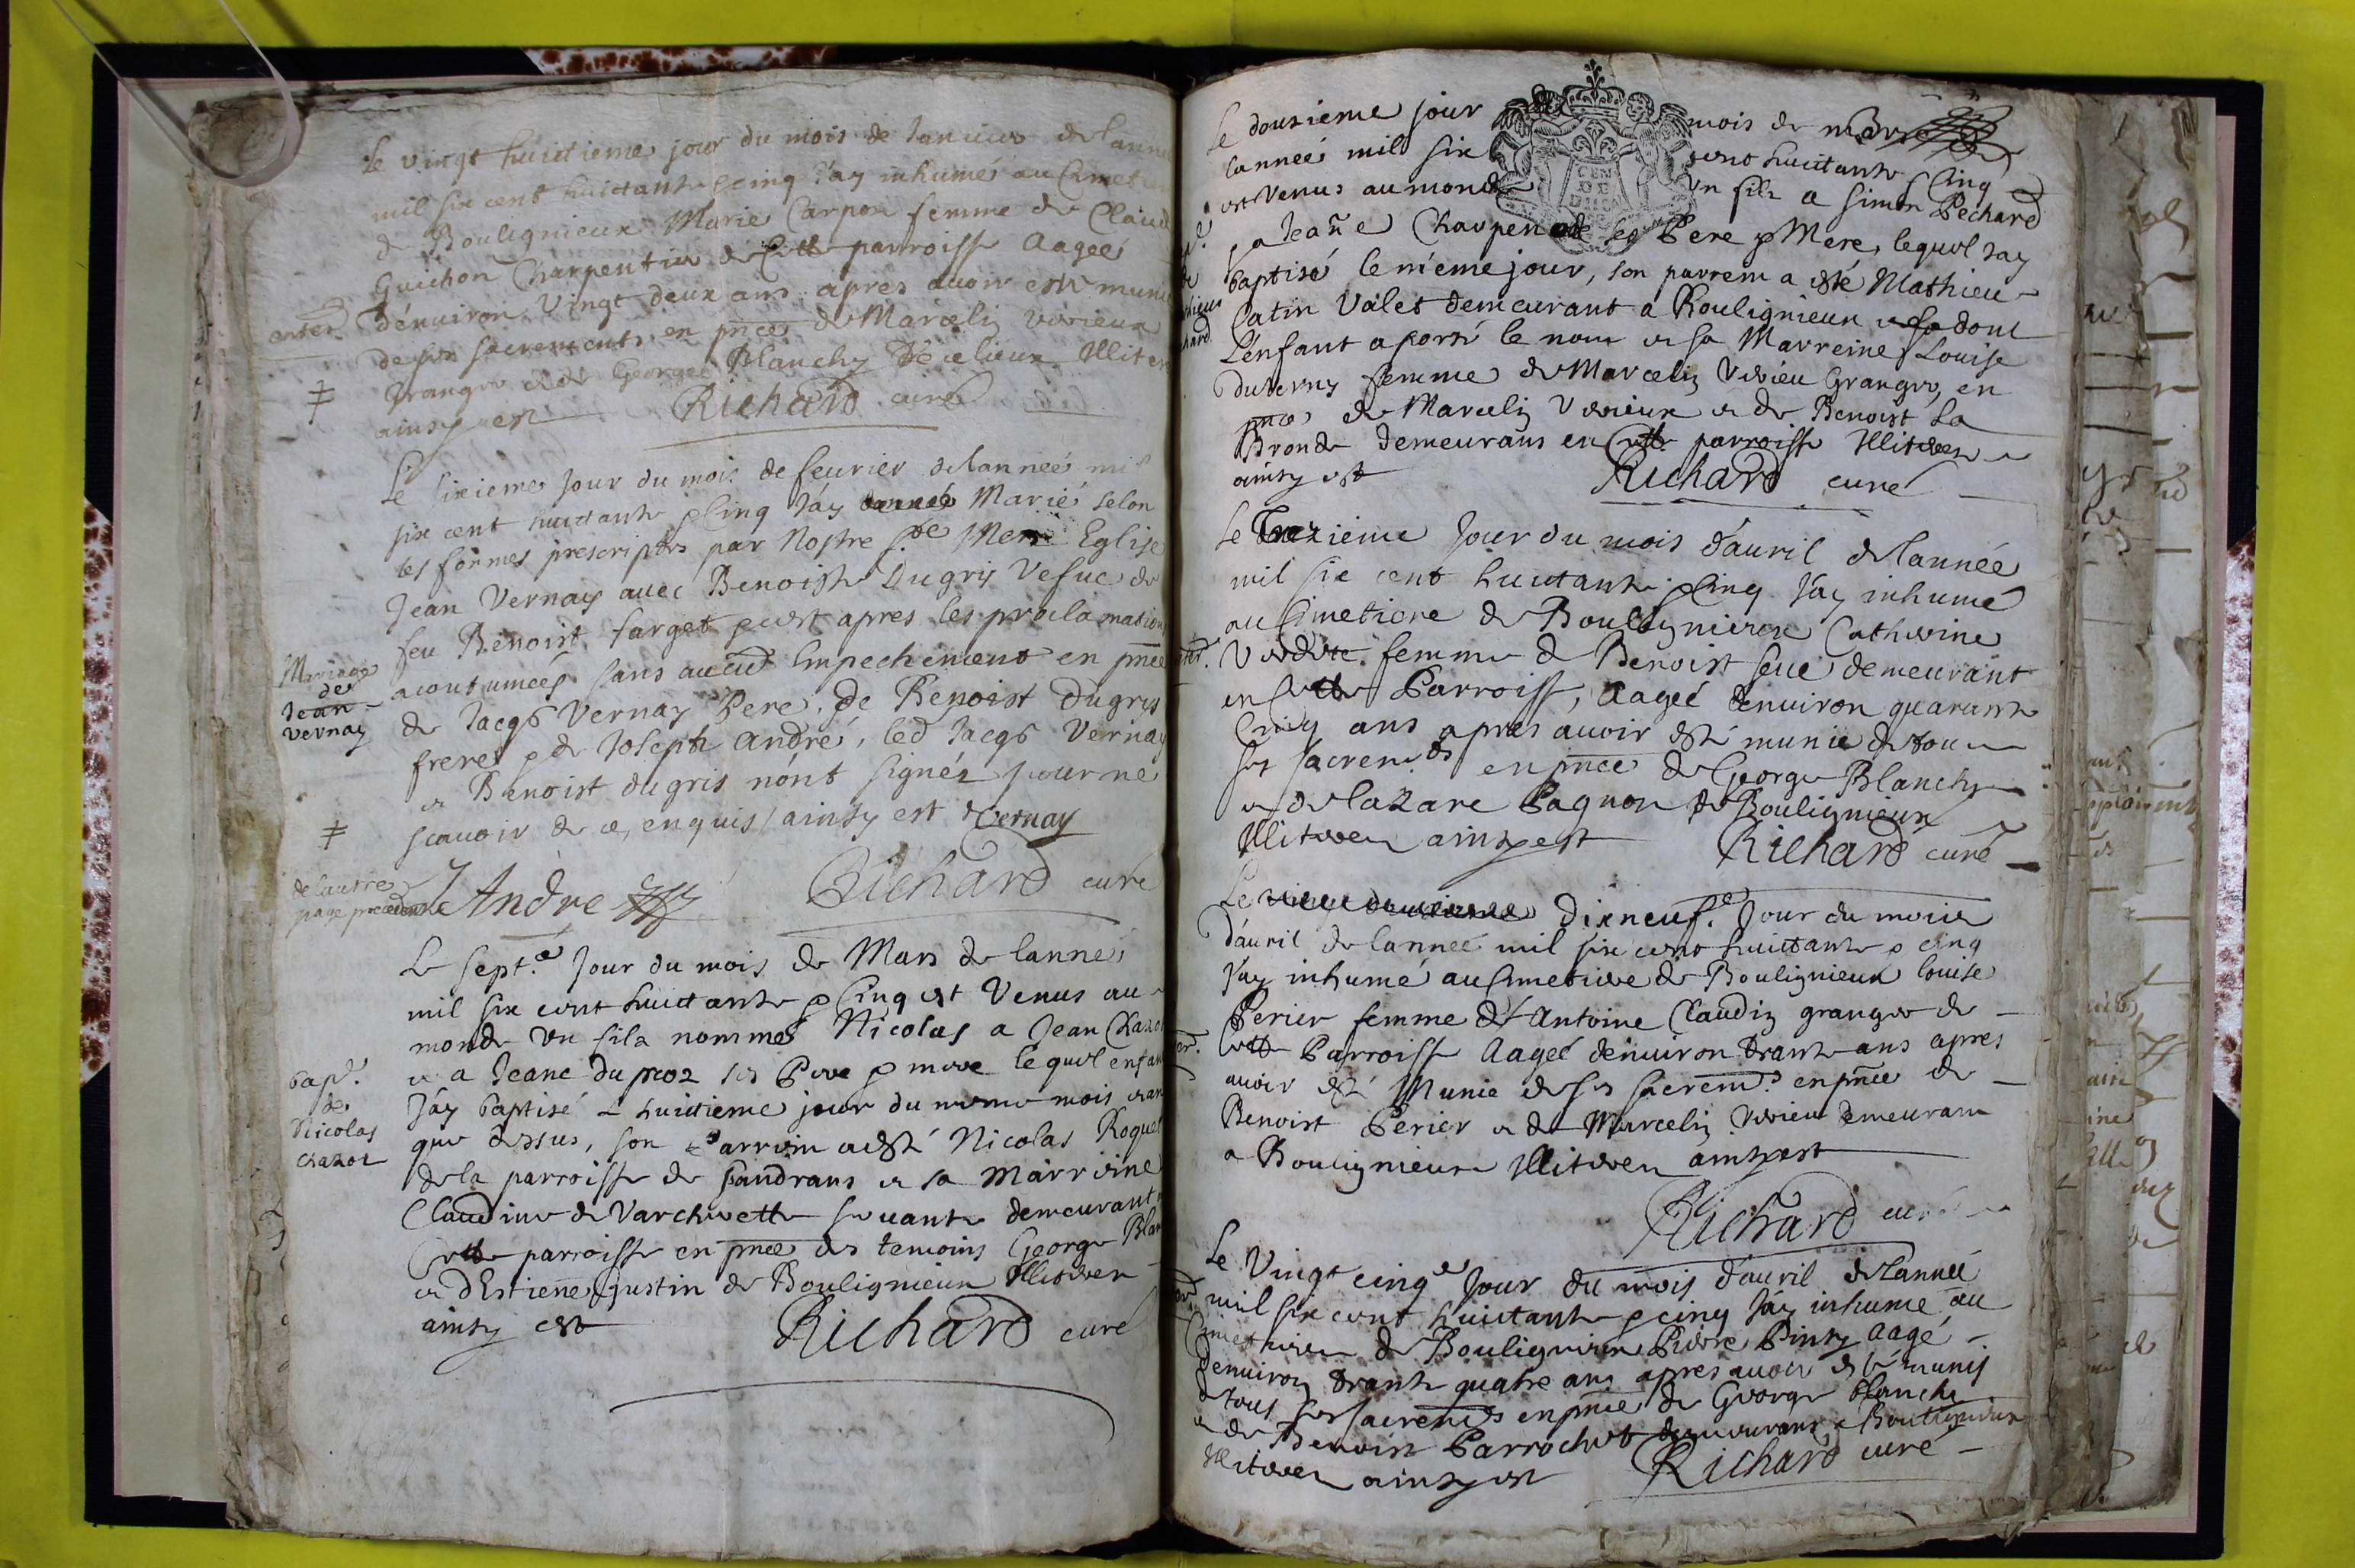 Le vingt huictieme jour du mois de Januier de lanne
mil six cent huictante & cinq J'ay inhumé au Cimet
de Boulignieux Marie Carpon femme de Claud
Guichon Charpentier de Cette parroisse Aageé
d'enuiron Vingt deux ans apres auoir esté munie
enter.
de ses sacrements en pnce de Marcelin Verieux
Granger et de George Blanchy Decelieux Illiter
ainsy est Richard curé
Le sixieme Jour du mois de feurier de lanneé mil
six cent huictante & Cinq J'ay Marié selon
les formes prescriptes par Nostre Ste Mere Eglise
Jean Vernay auec Benoiste Dugris Vefue de
feu Benoist farget & cest apres les proclamations
acoutumeés sans aucud Empechement en pnce
Mariage
de
Jean
Vernay
de Jacqs Vernay Pere, de Benoist Dugris
frere & de Joseph André, led Jacqs Vernay
et Benoist dugris n'ont signéz pour ne
scauoir de ce, enquis / ainsy est Vernay
de lautre
page precedente
J Andre Richard curé
Le sept.e Jour du mois de Mars de lanneé
mil six cent huictante & Cinq est Venus au
monde Un fils nommé Nicolas a Jean Chazot
et a Jeane du proz ses Pere & mere le quel enfant
J'ay baptisé le huictieme jour du meme mois et an
bapt.
de
Nicolas
Chazot
que dessus, son Parrein a esté Nicolas Roquet
de la parroisse de Sandrans et sa Marreine
Claudine de Varcherette seruante demeurante
Cette parroisse en pnce des temoins George Blan
et d'Estienne Gustin de Boulignieux Illiteres
ainsy est Richard curé
Le douzieme jour mois de mars
lanneé mil six cent huictante & Cinq
est Venus au monde Un fils a Simon Pechard
& a Jeañe Charpen ses Pere & Mere, lequel J'ay
baptisé le meme jour, son parrein a esté Mathieu
Catin Valet demeurant a Boulignieux dont
L'enfant a porté le nom et sa Marreine Louise
duverny femme de Marcelin Verieu Granger, en
pnce de Marcelin Verieux et de Benoist La
Bronde demeurans en Cette parroisse Illiteres
ainsy est Richard curé
Le Trezieme Jour du mois d'auril de lannée
mil six cent huictante & Cinq J'ay inhumé
au Cimetiere de Boulignieux Catherine
femme de Benoist seue demeurant
en Cette Parroisse, Aageé denuiron quarante
Cinq ans apres auoir esté munie de tou
ses sacremts en pnce de George Blanchy
et de lazare Pagnon de Boulignieux
Illiteres ainsy est Richard curé
Le dixneuf.e Jour du mois
d'auril de lanneé mil six cent huictante & cinq
J'ay inhumé au Cimetiere de Boulignieux louise
Perier femme d'Antoine Claudin granger de
Cette Parroisse Aageé denuiron trante ans apres
auoir esté Munie de ses sacrem.s en pnce de
Benoist Perier et de Marcelin Verieu demeurans
a Boulignieux Illiteres ainsy est
Richard curé
Le Vingt cinq.e Jour du mois d'auril de lanneé
mil six cent huictante & cinq J'ay inhumé au
Cimetiere de Boulignieux Pierre Pinsy Aagé
denuiron trante quatre ans apres auoir esté munis
de tous ses sacremts en pnce de George blanchy
et de Benoist Parrochet demeurans a Boulignieux
Illiteres ainsy est Richard curé